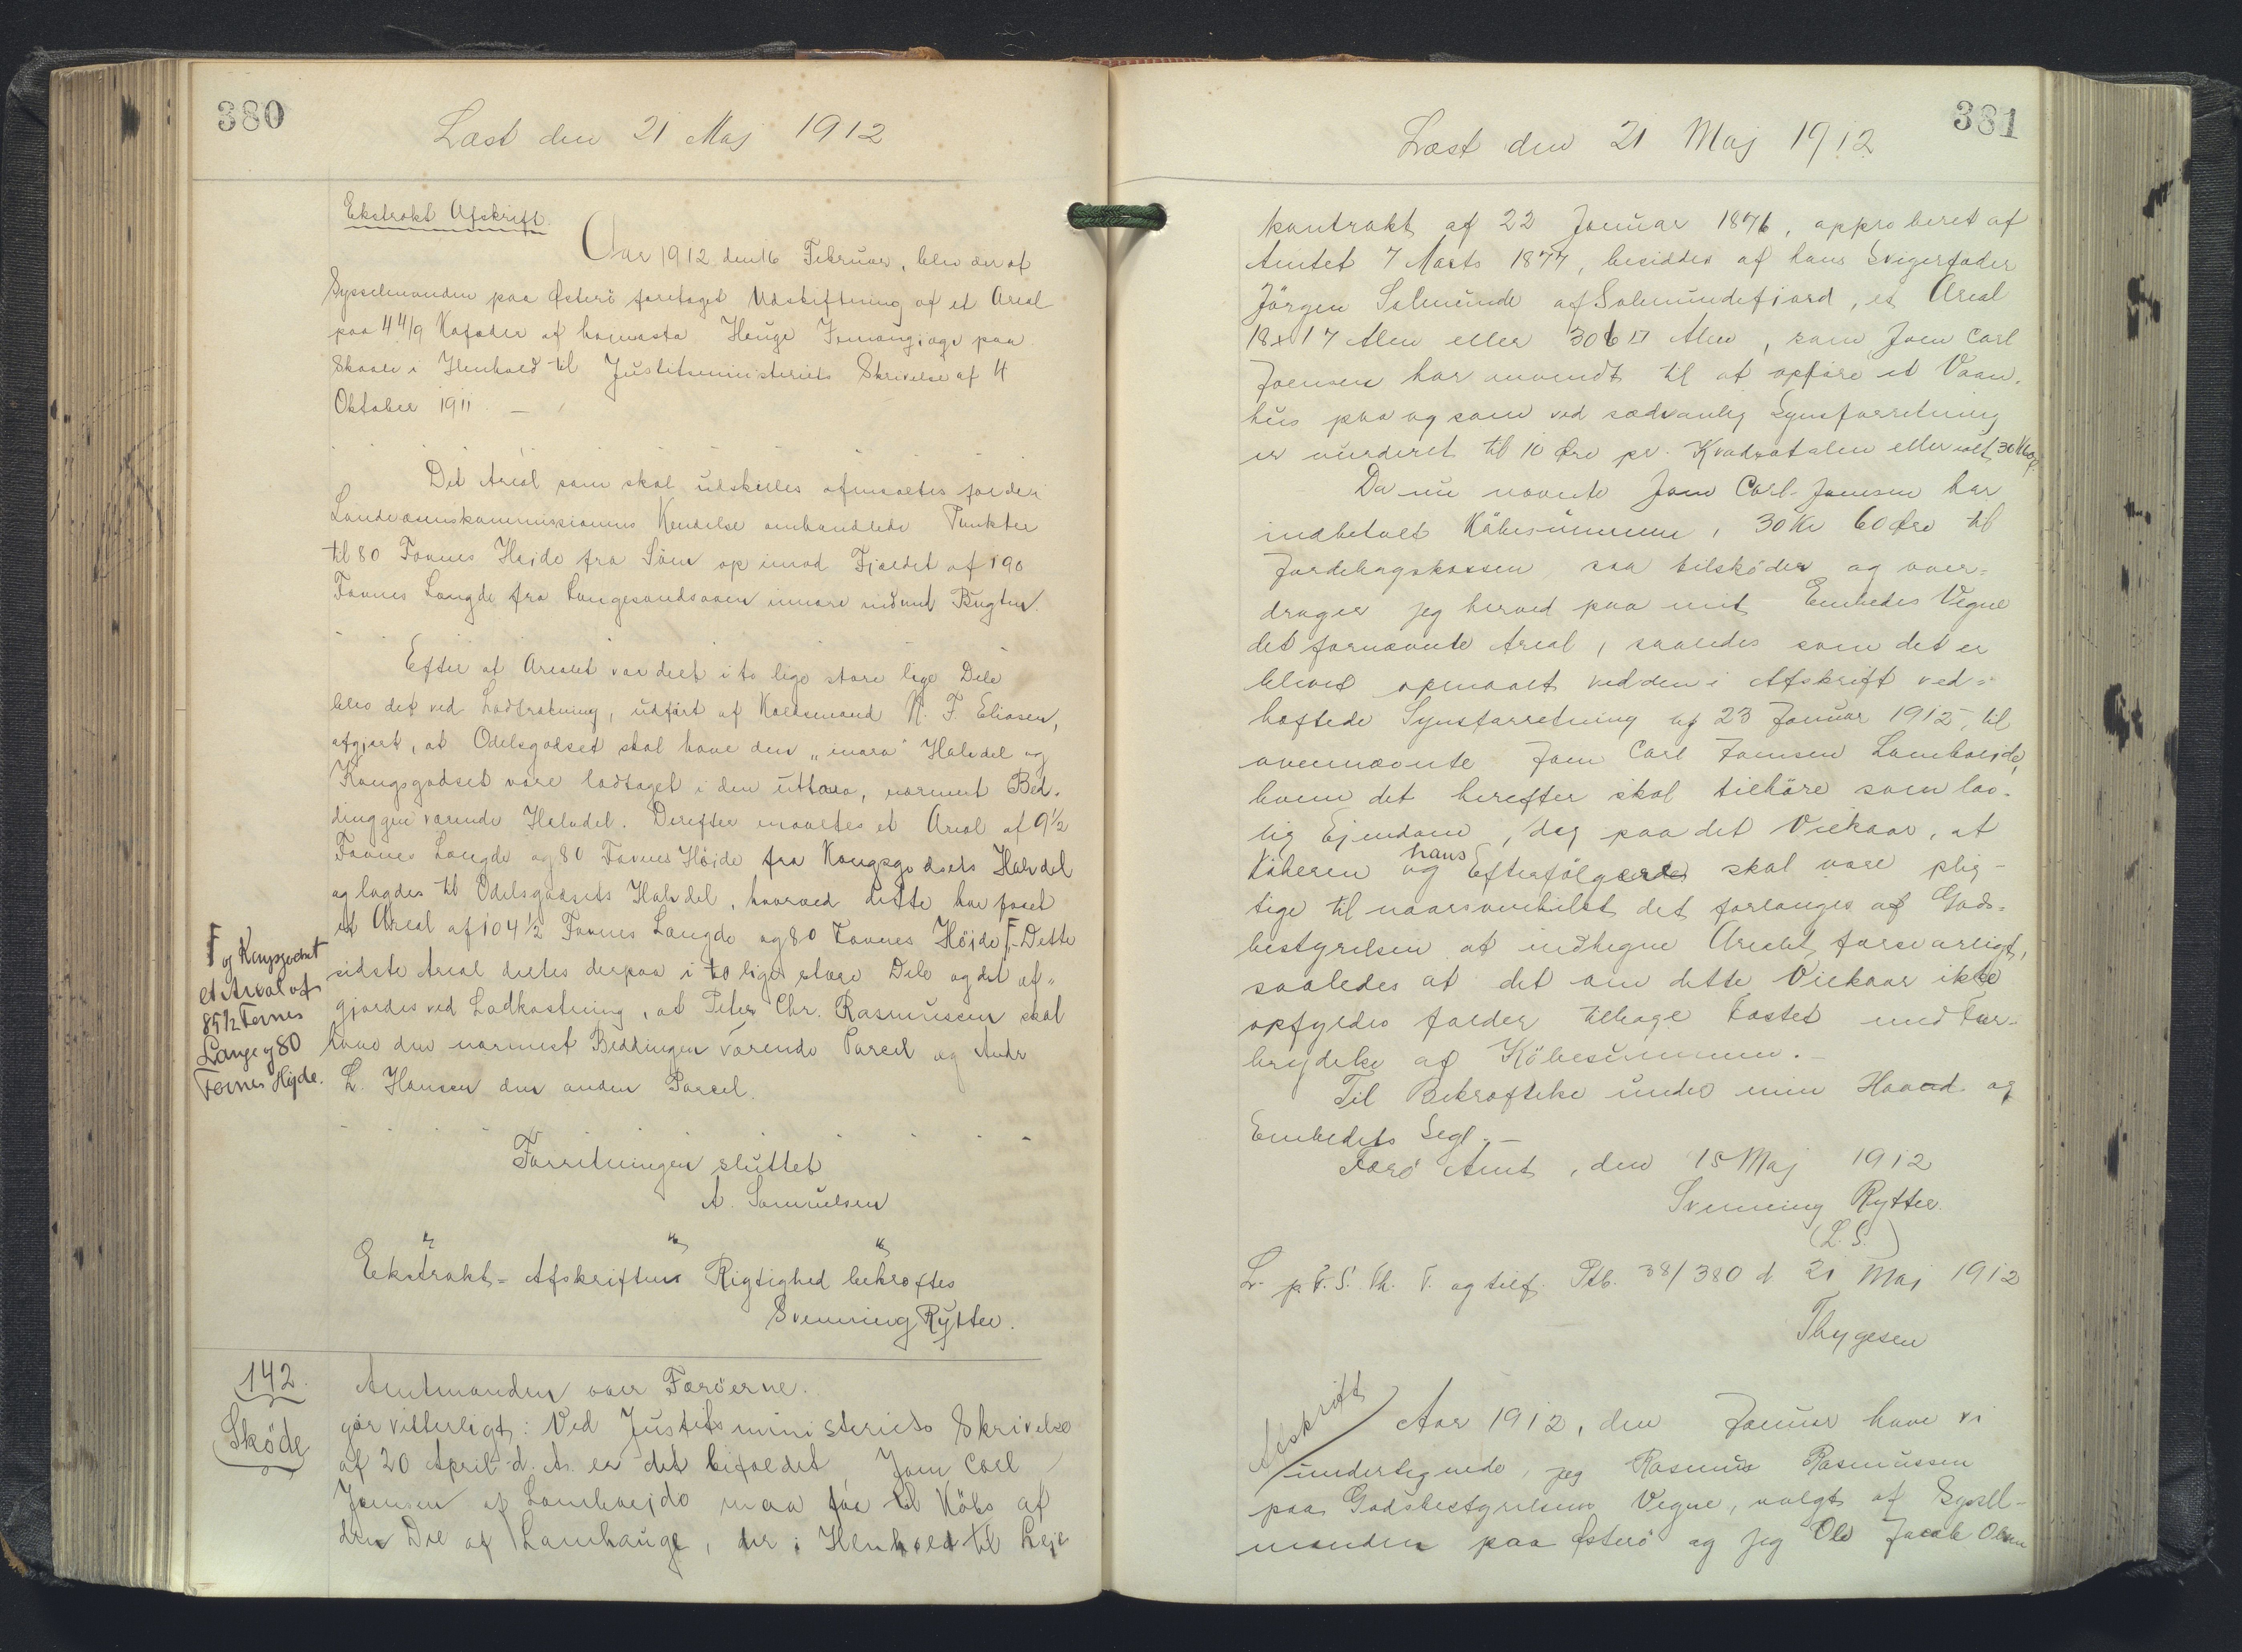 380
Læst den 21 Maj 1912
Ekstrakt Afskrift.
Aar 1912 den 16 Februar, blev der af
Sysselmanden paa Østerö foretaget Udskiftning af et Areal
paa 4 4/9 af Hauge paa
Skaale i Henhold til Justitsministeriets Skrivelse af 4
Oktober 1911 —
Det Areal som skal udskilles afmaaltes før de i
Landvæsenskommissionens Kendelse omhandlede Punkter
til 80 Favnes Højde fra Söen op imod Fjældet af 190
Favnes Længde fra Langesandsaaen
Efter at Arealet var delt i to lige store lige Dele
blev det ved Lodtrækning, udfört af Kaldsmand K. F. Eliasen,
afgjort, at Odelsgodset skal have den „inara" Halvdel og
Kongsgodset være lodtaget i den uttara, nærmest Bed-
dinggen værende Halvdel. Derefter maaltes et Areal af 9½
Favnes Længde og 80 Favnes Höide fra Kongsgodsets Halvdel
og lagdes til Odelsgodsets Halvdel, hvorved dette har faaet
et Areal af 104½ Favnes Længde og 80 Favnes Höide F. - Dette
F og Kongsgodset
et Areal af
85½ Favnes
Længe og 80
Favnes Højde.
sidste Areal deltes derpaa i to lige store Dele og det af-
gjordes ved Lodkastning, at Peter Chr. Rasmussen skal
have den nærmest Beddingen værende Parcel og Andr
L. Hansen den anden Parcel.
Forretningen sluttet
A. Samuelsen
Ekstrakt-Afskriftens Rigtighed bekræftes
Svenning Rytter.
142.
Sköde
Amtmanden over Færöerne.
gör vitterligt: Ved Justitsministeriets Skrivelse
af 20 April d. A. er det bifaldet, Joen Carl
Joensen af Lambarejde maa faa til Köbs af
den Del af Lamhauge, der i Henhold til Leje
381
Læst den 21 Maj 1912
kontrakt af 22 Januar 1876, approberet af
Amtet 7 Marts 1877, besiddes af hans Svigerfader
Jörgen Salmunde af Solmundefjord, et Areal
18 x 17 Alen eller 306 □ Alen, som Joen Carl
Joensen har anvendt til at opføre et Vaan-
hus paa og som ved sædvanlig Synsforretning
er vurderet til 10 Øre pr. Kvadratalen eller ialt 30 Kr 60 Ø.
Da nu nævnte Joen Carl Joensen har
indbetalt Köbesummen, 30 Kr 60 Øre til
Jordebogskassen, saa tilsköder og over-
drager jeg herved paa mit Embedes Vegne
det fornævnte Areal, saaledes som det er
blevet opmaalt ved den i Afskrift ved-
hæftede Synsforretning af 23 Januar 1912, til
ovennævnte Joen Carl Joensen Lambareide,
hvem det herefter skal tilhöre som lov-
lig Ejendom, dog paa det Vilkaar, at
Köberen og hans Efterfölgere skal være plig-
tige til naarsomhelst det forlanges af Gods-
bestyrelsen at indhegne Arealet forsvarligt,
saaledes at det om dette Vilkaar ikke
opfyldes falder tilbage Fæstet med For-
brydelse af Köbesummen.-
Til Bekræftelse under min Haand og
Embedets Segl. —
Færö Amt, den 15 Maj 1912
Svenning Rytter.
(L. S.)
L. p. F. S. Th. T. og tilf. Ptb. 38/380 d 21 Maj 1912
Thygesen
Afskrift
Aar 1912, den Januar have vi
undertegnede, jeg Rasmus Rasmussen
paa Godsbestyrelsens Vegne, valgt af Syssel-
manden paa Østerö og jeg Ole Jacob Olsen